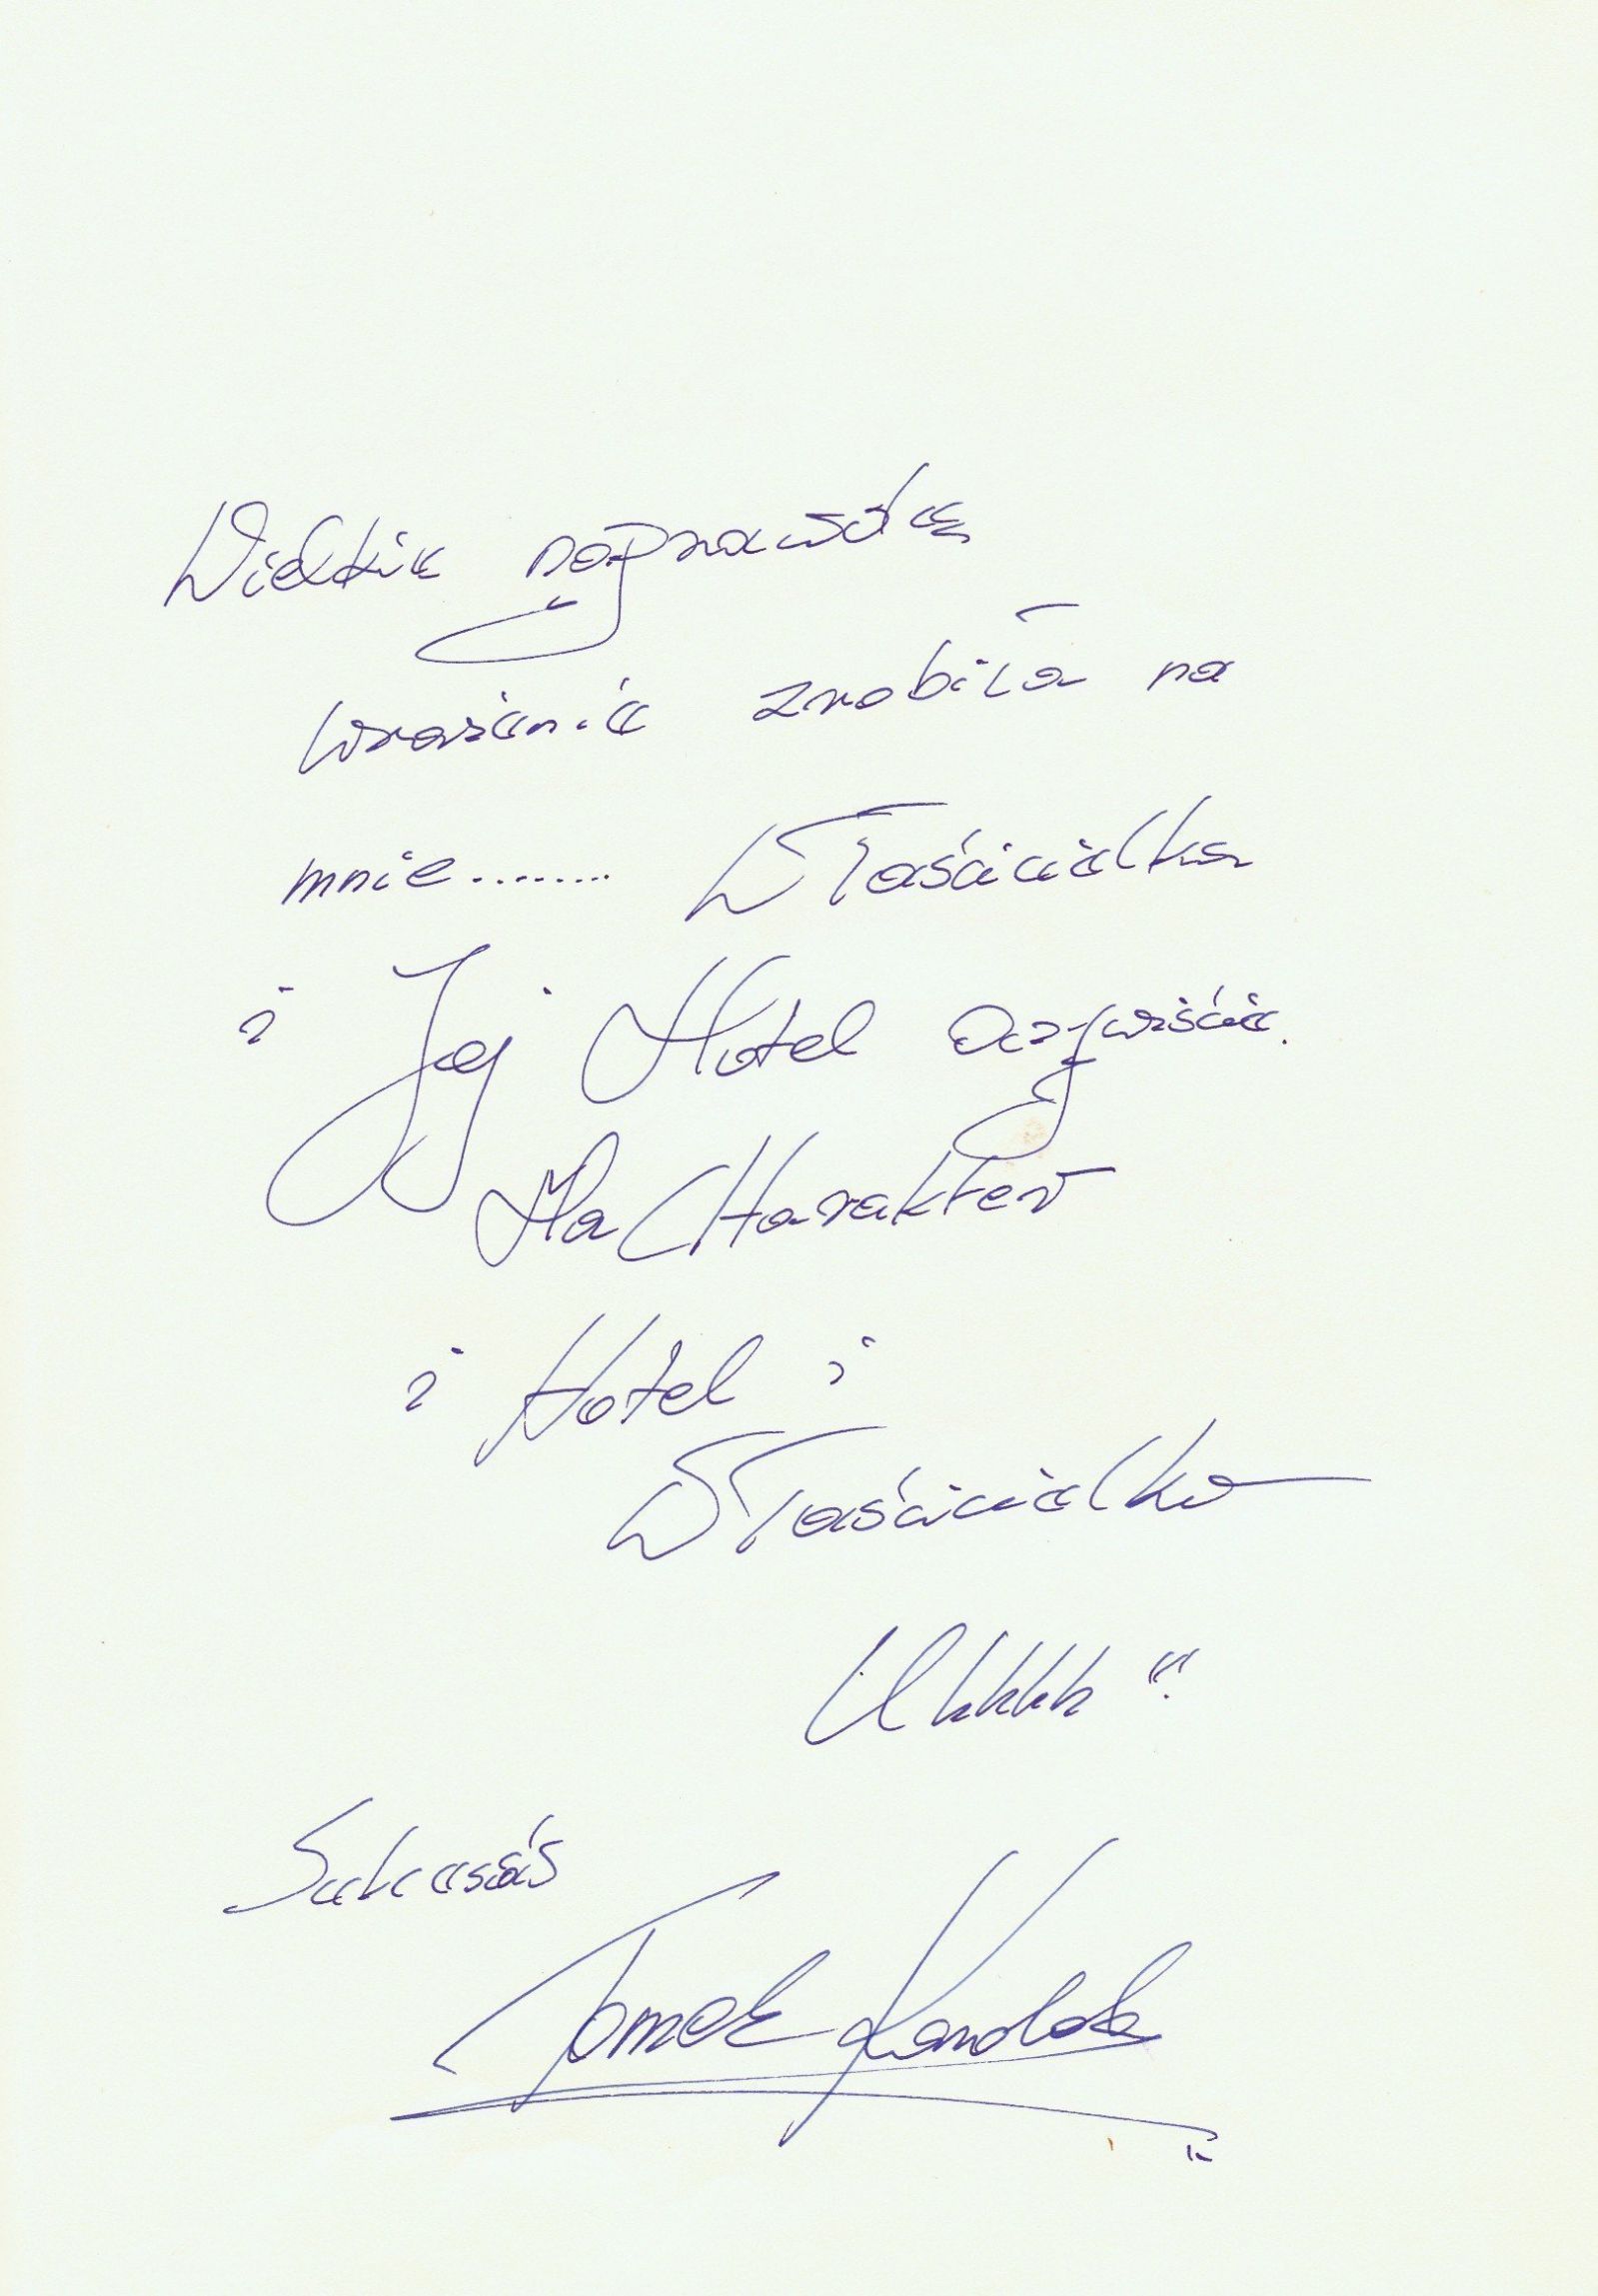 Wielkie naprawdę
wrażenie zrobiła na
mnie........ Właścicielka
i Jej Hotel oczywiście.
Ma CHarakter
i Hotel i
Właścicielka
Uhhhh
Tomek